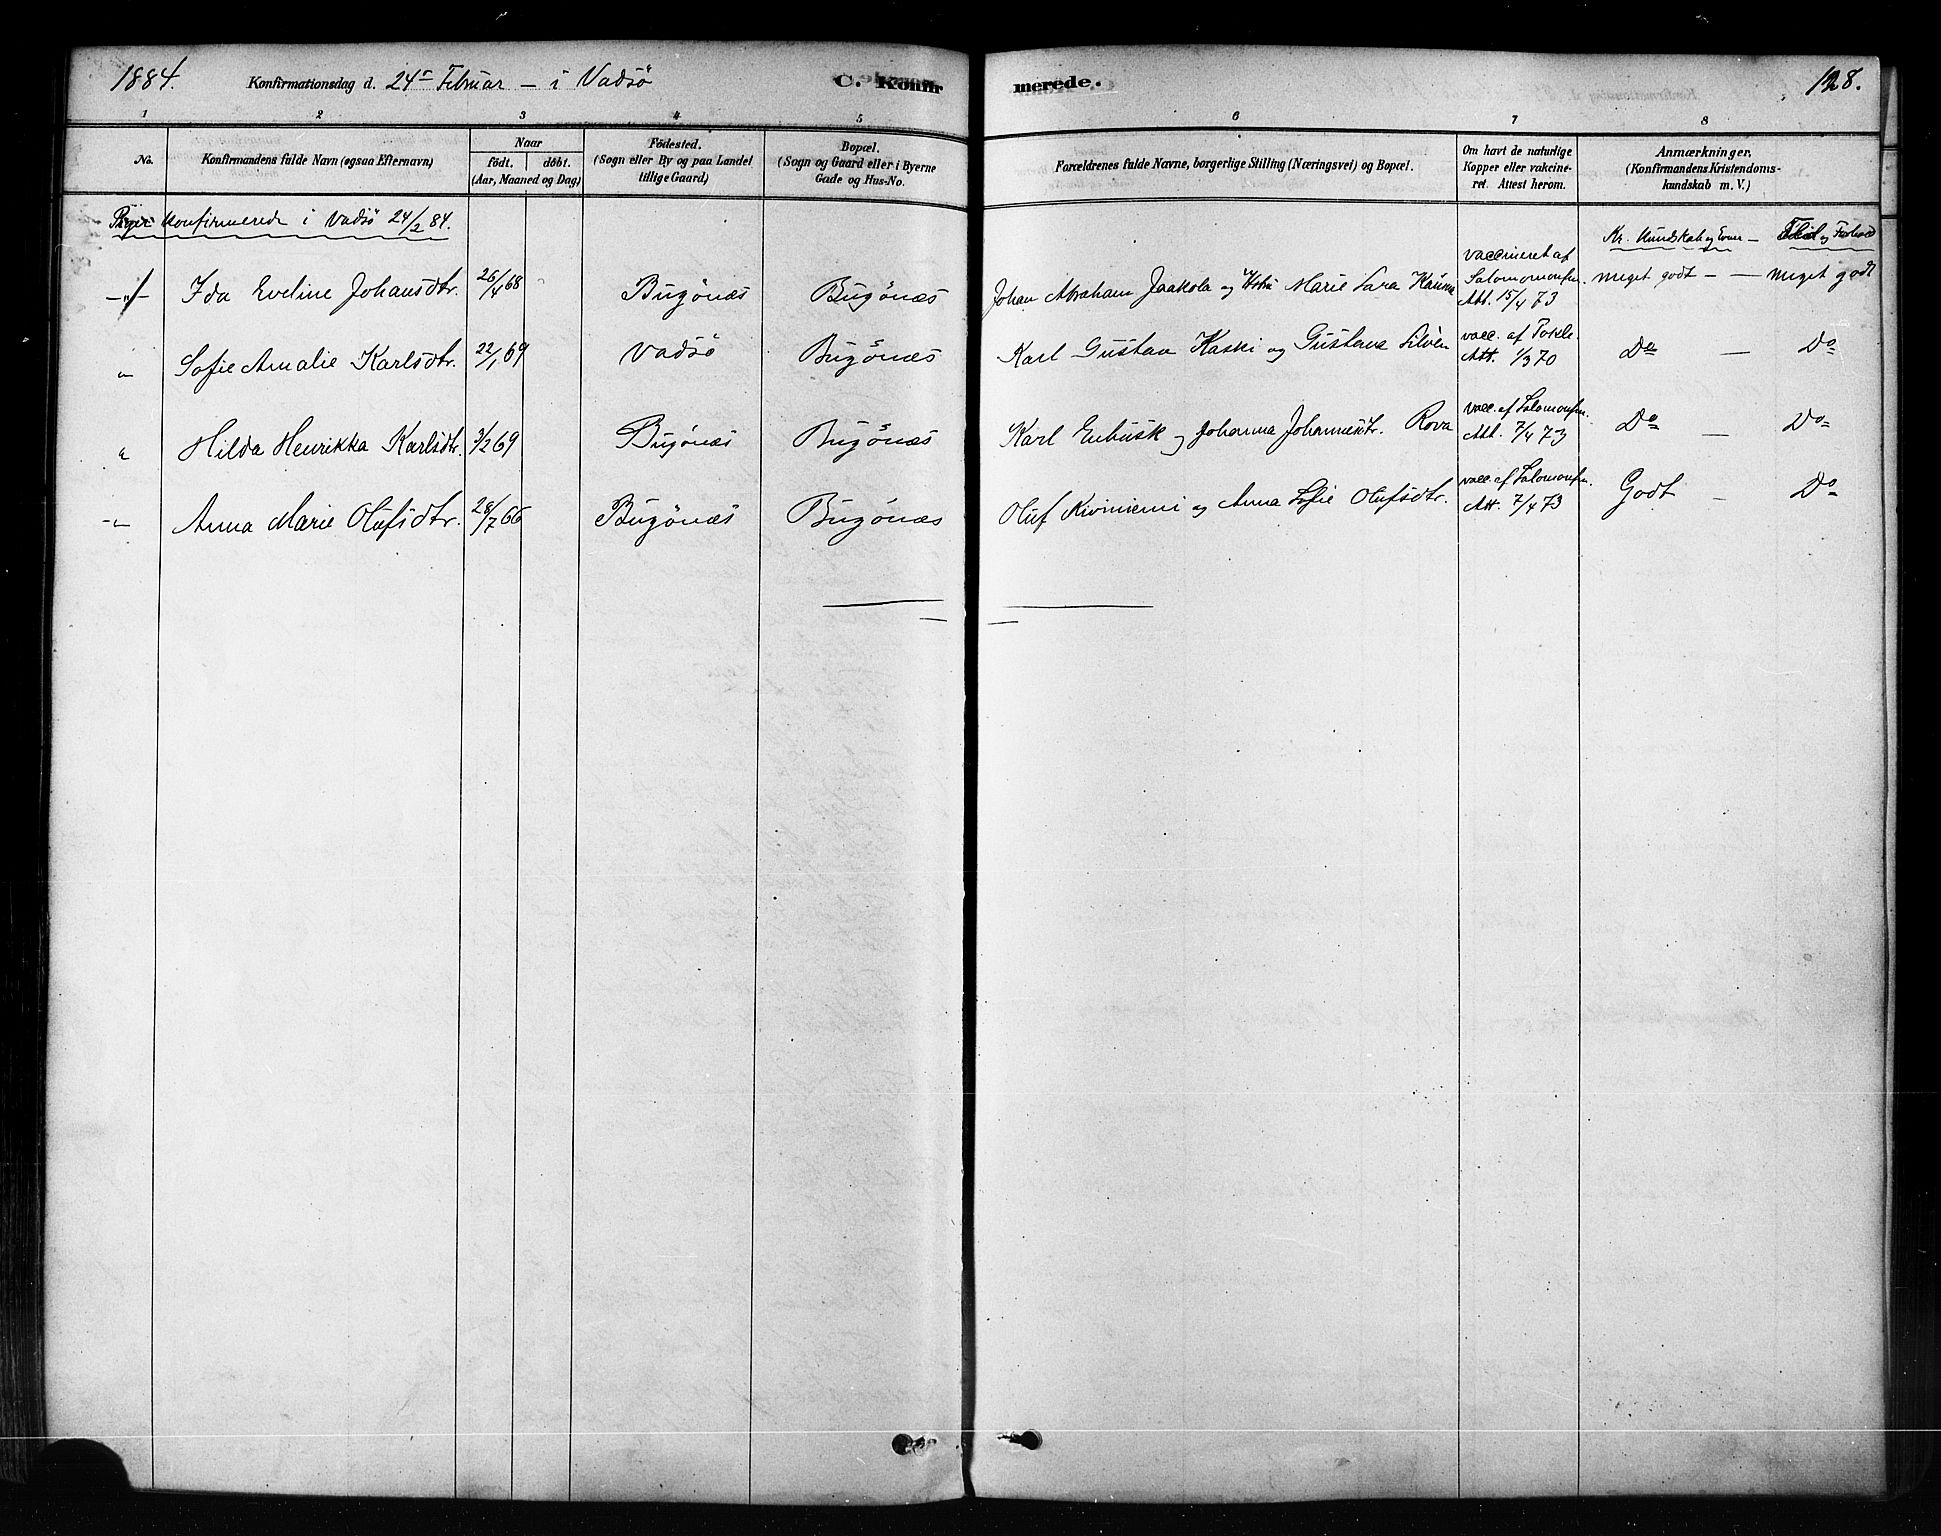 1884. Konfirmationsdag d. 24de Februar – i Vadsö C. Konfir merede. 128.
1 2 3 4 5 6 7 8
No.
Konfirmandens fulde Navn (ogsaa Efternavn)
Naar
födt. döbt.
(Aar, Maaned og Dag)
Födested.
(Sogn eller By og paa Landet
tillige Gaard)
Bopæl.
(Sogn og Gaard eller i Byerne
Gade og Hus-No.
Forældrenes fulde Navne, borgerlige Stilling (Næringsvei) og Bopæl.
Om havt de naturlige
Kopper eller vakcine-
ret. Attest herom.
Anmærkninger.
(Konfirmandens Kristendoms-
kundskab m. V.)
Piger Konfirmerede i Vadsö 24/2 84.
Kr. Kundskab og Evner – Flid og Forhold
–"– Ida Eveline Johansdtr. 26/4 68 Bugönæs Bugönæs Johan Abraham Jaakola og Hstru Marie Sara vaccineret af Salomonsen. Att. 15/4 73 meget godt – – meget godt
" Sofie Amalie Karlsdtr. 22/1 69 Vadsö Bugönæs Karl Gustav Kaski og Gustava Silvén vacc. af Att. 1/3 70 Do – Do
" Hilda Henrikka Karlsdtr. 3/2 69 Bugönæs Bugönæs Karl Enbusk og Johanna Johannesdtr. Rova vacc. af Salomonsen. Att. 7/4 73 Do – Do
–"– Anna Marie Olufsdtr. 28/7 66 Bugönæs Bugönæs Oluf Kiviniemi og Anna Sofie Olufsdtr. vacc. af Salomonsen. Att. 7/4 73 Godt – Do